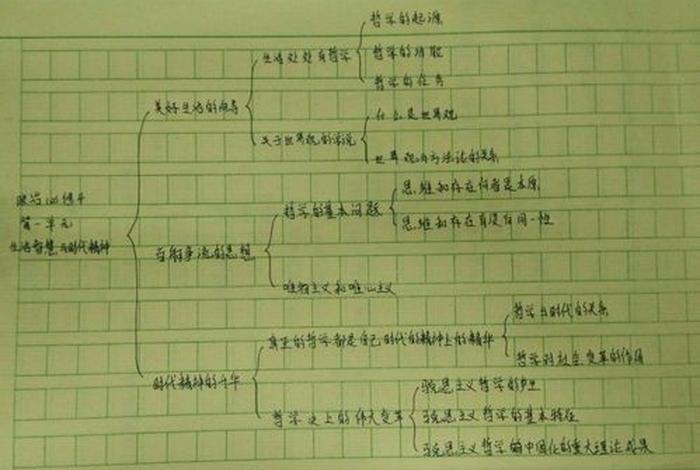 哲学的起源
生活处处有哲学
哲学的功能
哲学的任务
美好生活的向导
什么是世界观
关于世界观的学说
世界观与方法论的关系
政治必修4
第一单元
生活智慧与时代精神
思维和存在何者是本原
哲学的基本问题
思维和存在有没有同一性
百舸争流的思想
唯物主义和唯心主义
哲学与时代的关系
真正的哲学都是自己时代的精神上的精华
哲学对社会变革的作用
时代精神的升华
马克思主义哲学的产生
哲学史上的伟大变革
马克思主义哲学的基本特征
马克思主义哲学的中国化的重大理论成果